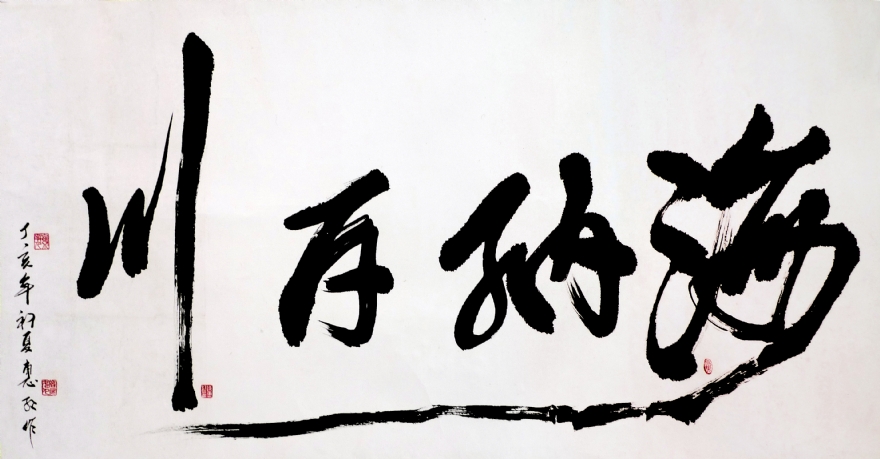 海纳百川
丁亥年初夏惠
作